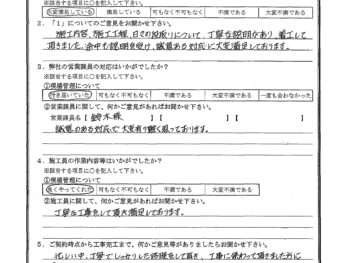 ※該当する項目に○を記入して下さい
大変満足している 満足している 可も不可もなく 不満である 大変不満である
2．「1」についてのご意見をお聞かせ下さい。
施工内容、施工工程、日々の段取りについて、丁寧な説明があり、着工して
頂きました。会中も説明を受け、誠意ある対応に大変満足しております。
3．弊社の営業課員の対応はいかがでしたか？
※該当する項目に○を記入して下さい
①現場管理について
行き届いていた 可もなく不可もなく 不満である 大変不満である 一度も会わなかった
②営業課員に関して、何かご意見があればお聞かせ下さい。
営業課員名【 鈴木様 】【 】【 】
誠意のある対応で大変有り難く思っております。
4．施工員の作業内容等はいかがでしたか？
※該当する項目に○を記入して下さい
①現場管理について
良くやってくれた 可もなく不可もなく 不満である 大変不満である
②施工員に関して、何かご意見があればお聞かせ下さい。
丁寧な工事をして頂き満足しております。
5．ご契約時点から工事完工まで、何かご意見等がありましたらお聞かせ下さい。
忙しい中、丁寧でしっかりした修理をして頂き、工事に携わって頂きました方に